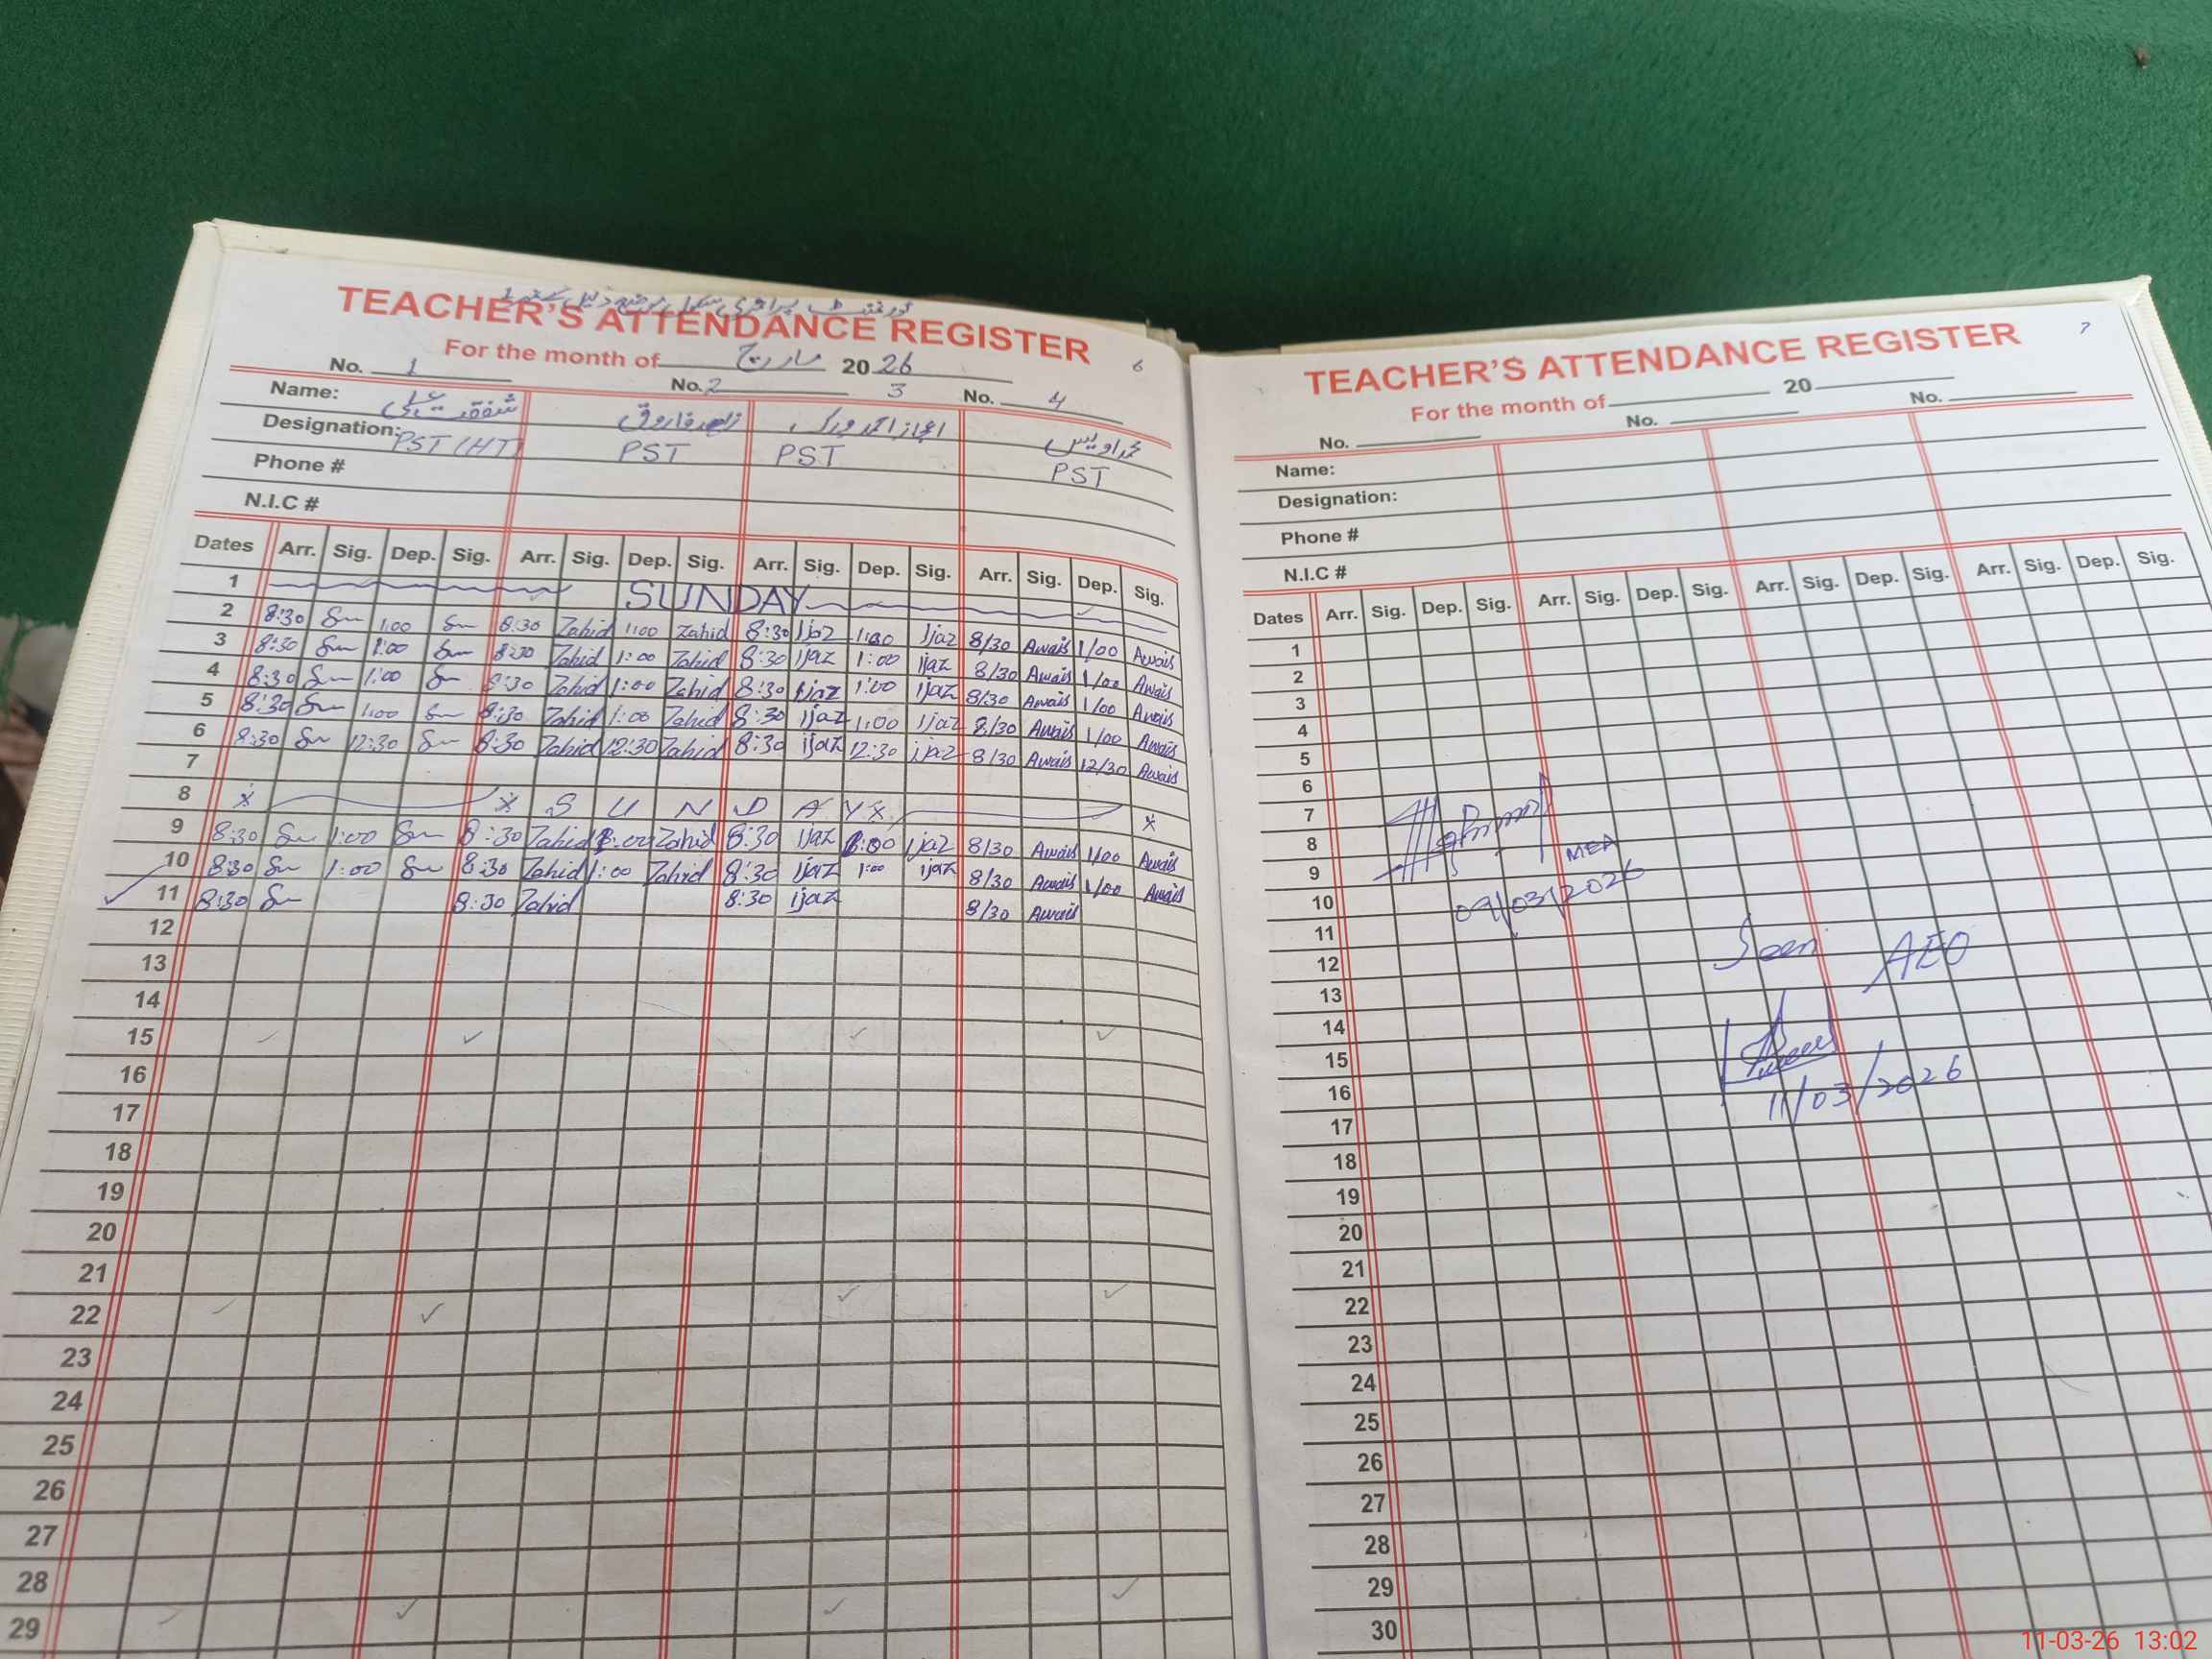 گورنمنٹ پرائمری سکول
TEACHER'S ATTENDANCE REGISTER
6
For the month of مارچ 2026
No. 1 No. 2 3 No. 4
Name: شفقت علی زاہد فاروق اعجاز احمد محمد اویس
Designation: PST (HT) PST PST PST
Phone #
N.I.C #
Dates Arr. Sig. Dep. Sig. Arr. Sig. Dep. Sig. Arr. Sig. Dep. Sig. Arr. Sig. Dep. Sig.
1 SUNDAY
2 8:30 1:00 8:30 Zahid 1:00 Zahid 8:30 Ijaz 1:00 Ijaz 8/30 Awais 1/00 Awais
3 8:30 1:00 8:30 Zahid 1:00 Zahid 8:30 Ijaz 1:00 Ijaz 8/30 Awais 1/00 Awais
4 8:30 1:00 8:30 Zahid 1:00 Zahid 8:30 Ijaz 1:00 Ijaz 8/30 Awais 1/00 Awais
5 8:30 1:00 8:30 Zahid 1:00 Zahid 8:30 Ijaz 1:00 Ijaz 8/30 Awais 1/00 Awais
6 8:30 12:30 8:30 Zahid 12:30 Zahid 8:30 Ijaz 12:30 Ijaz 8/30 Awais 12/30 Awais
7
8 x x S U N D A Y x x
9 8:30 1:00 8:30 Zahid 1:00 Zahid 8:30 Ijaz 1:00 Ijaz 8/30 Awais 1/00 Awais
10 8:30 1:00 8:30 Zahid 1:00 Zahid 8:30 Ijaz 1:00 Ijaz 8/30 Awais 1/00 Awais
11 8:30 8:30 Zahid 8:30 Ijaz 8/30 Awais
12
13
14
15
16
17
18
19
20
21
22
23
24
25
26
27
28
29
7
TEACHER'S ATTENDANCE REGISTER
For the month of 20
No. No. No.
Name:
Designation:
Phone #
N.I.C #
Dates Arr. Sig. Dep. Sig. Arr. Sig. Dep. Sig. Arr. Sig. Dep. Sig. Arr. Sig. Dep. Sig.
1
2
3
4
5
6
7
8
MEA
9
10
09/03/2026
11
Seen AEO
12
13
14
15
16
11/03/2026
17
18
19
20
21
22
23
24
25
26
27
28
29
30
11-03-26 13:02